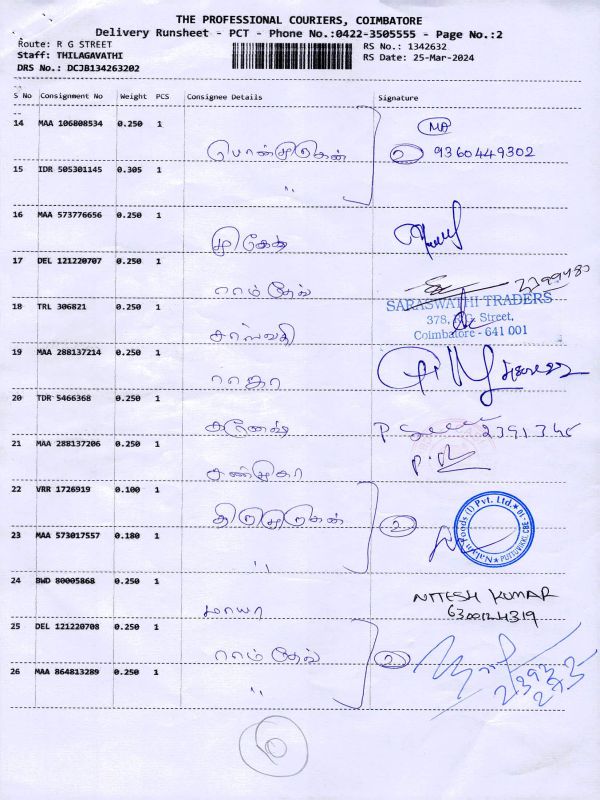 THE PROFESSIONAL COURIERS, COIMBATORE
Delivery Runsheet - PCT - Phone No.:0422-3505555 - Page No.:2
Route: R G STREET
RS No.: 1342632
Staff: THILAGAVATHI
RS Date: 25-Mar-2024
DRS No.: DCJB134263202
S No Consignment No Weight PCS Consignee Details Signature
14 MAA 106808534 0.250 1 பொன்முருகன் MA
2 9360449302
15 IDR 505301145 0.305 1 "
16 MAA 573776656 0.250 1
17 DEL 121220707 0.250 1 ராம் தேவ்
18 TRL 306821 0.250 1 சரஸ்வதி
SARASWATHI TRADERS
378, R.G. Street,
Coimbatore - 641 001
19 MAA 288137214 0.250 1 ராஜா
20 TDR 5466368 0.250 1 கணேஷ் 2391345
21 MAA 288137206 0.250 1 சண்முகா
22 VRR 1726919 0.100 1 திருமுருகன் 2
23 MAA 573017557 0.180 1 "
24 BWD 80005868 0.250 1 மாயா NITESH KUMAR
25 DEL 121220708 0.250 1 ராம் தேவ் 2
26 MAA 864813289 0.250 1 "
6